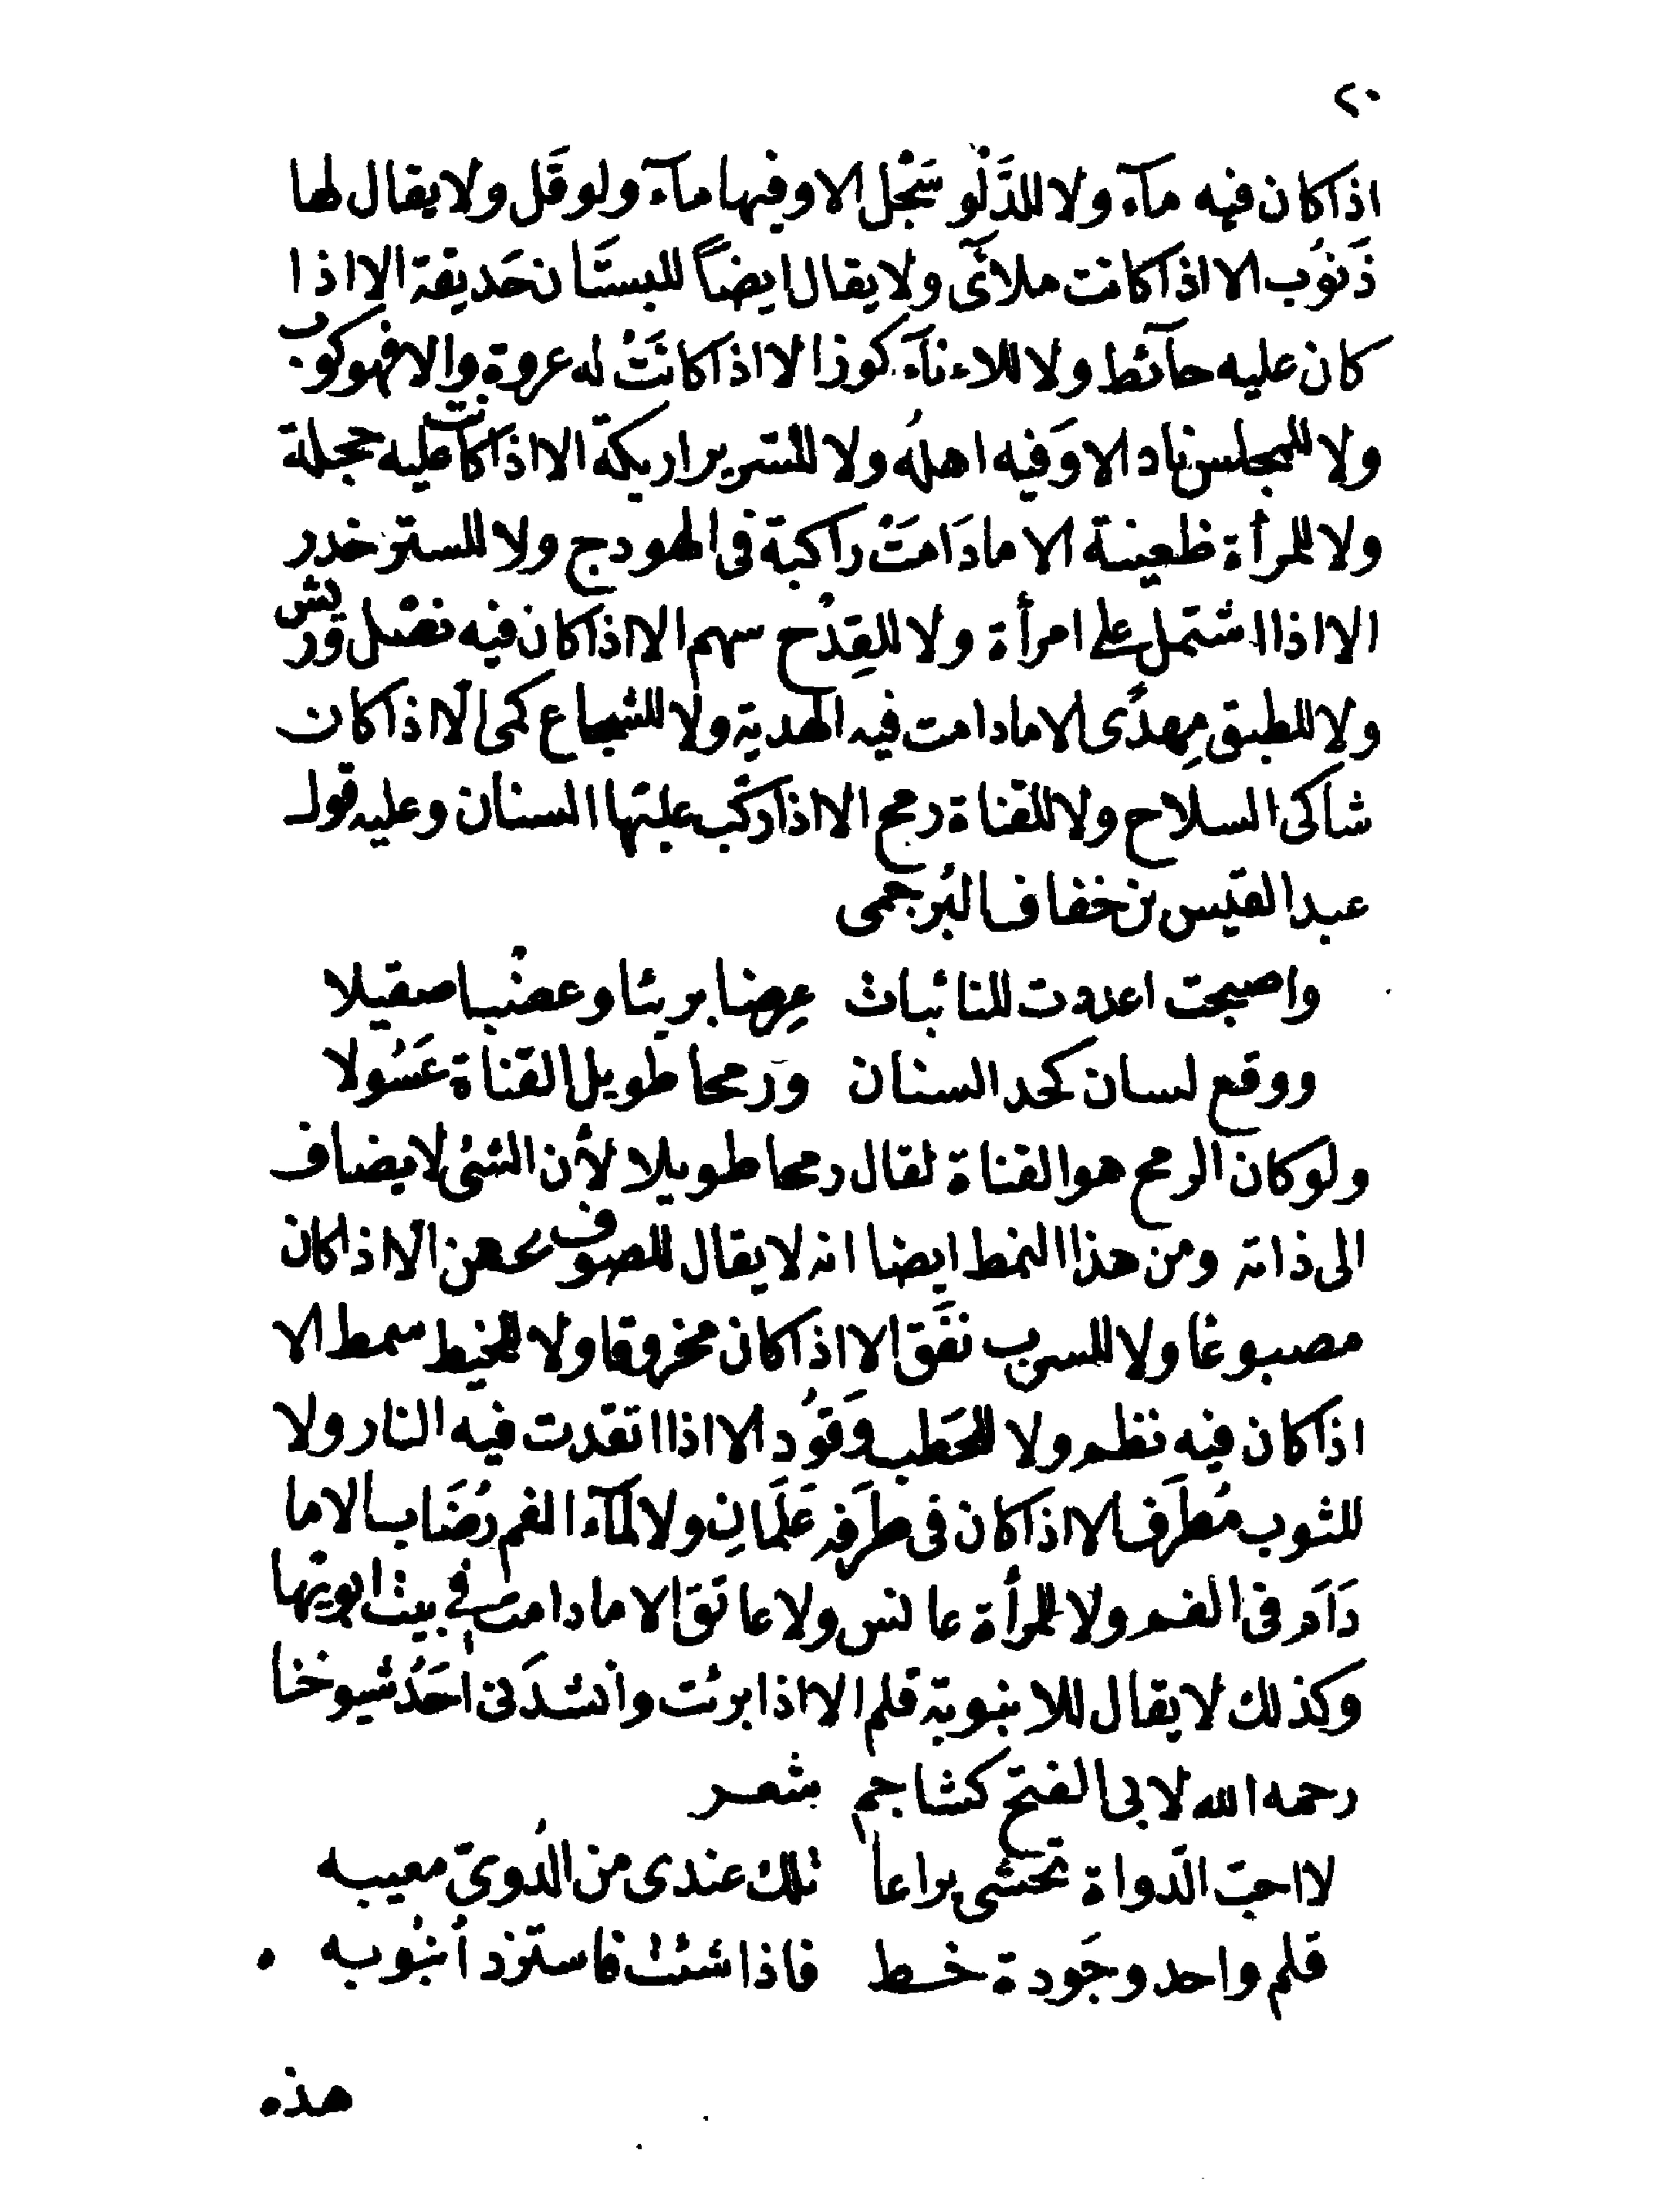 ٢٠
اذا كان فيه مآء ولا للدَّلْو سَجْل الا وفيها مآء ولو قَل ولا يقال لها
ذَنوُب الا اذا كانت ملاَى ولا يقال ايضاً للبستَان حَديقة الا اذا
كان عليه حآئط ولا للاءنآء كوز الا اذا كانَتْ له عروة والا فهو كوب
ولا للمجلس ناد الا وَفيه اهلهُ ولا للسرير اريكة الا اذا كانت عليه حجلة
ولا للمرأة ظعينة الا مادَامَتْ راكبة فى الهودج ولا للستر خدر
الا اذا اشتمل على امرأة ولا للقِدْح سهم الا اذا كان فيه نصْل وريش
ولا للطبق مِهدًى الا مادامت فيه الهدية ولا للشجاع كمى الا اذا كان
شاكى السلاح ولا للقناة رمح الا اذا ركّب عليها السنان وعليه قول
عبد القيس بن خفاف البُرجمى
واصبحت اعددت للنائبات عِرضا بريئا وعضْبا صقيلا
ووقع لسان كحد السنان ورمحا طويل القناة عَسُولا
ولو كان الرمح هو القناة لقال رمحا طويلا لأن الشئ لا يضاف
الى ذاته ومن هذا النمط ايضا انه لا يقال للصوف عهن الا اذا كان
مصبوغا ولا للسرب نفَق الا اذا كان مخروقا ولا للخيط سمط الا
اذا كان فيه نظم ولا للحَطب وَقوُد الا اذا اتقدت فيه النار ولا
للثوب مُطرَف الا اذا كان فى طرَفيه عَلَمَانِ ولا لمآء الفم رُضَاب الا ما
دَاَم فى الفم ولا للمرأة عانس ولا عاتق الا مادامت فى بيت ابويها
وكذلك لا يقال للانبوبة قلم الا اذا بريت وانشدَنى احَدُ شيوخنا
رحمه الله لابى الفتح كشاجم شعر
لا احبّ الدواة تحشى يراعا تلك عندى من الدُوىّ معيبه
قلم واحد وجَودة خط فاذا شئت فاستزد أنبُوبه
هذه